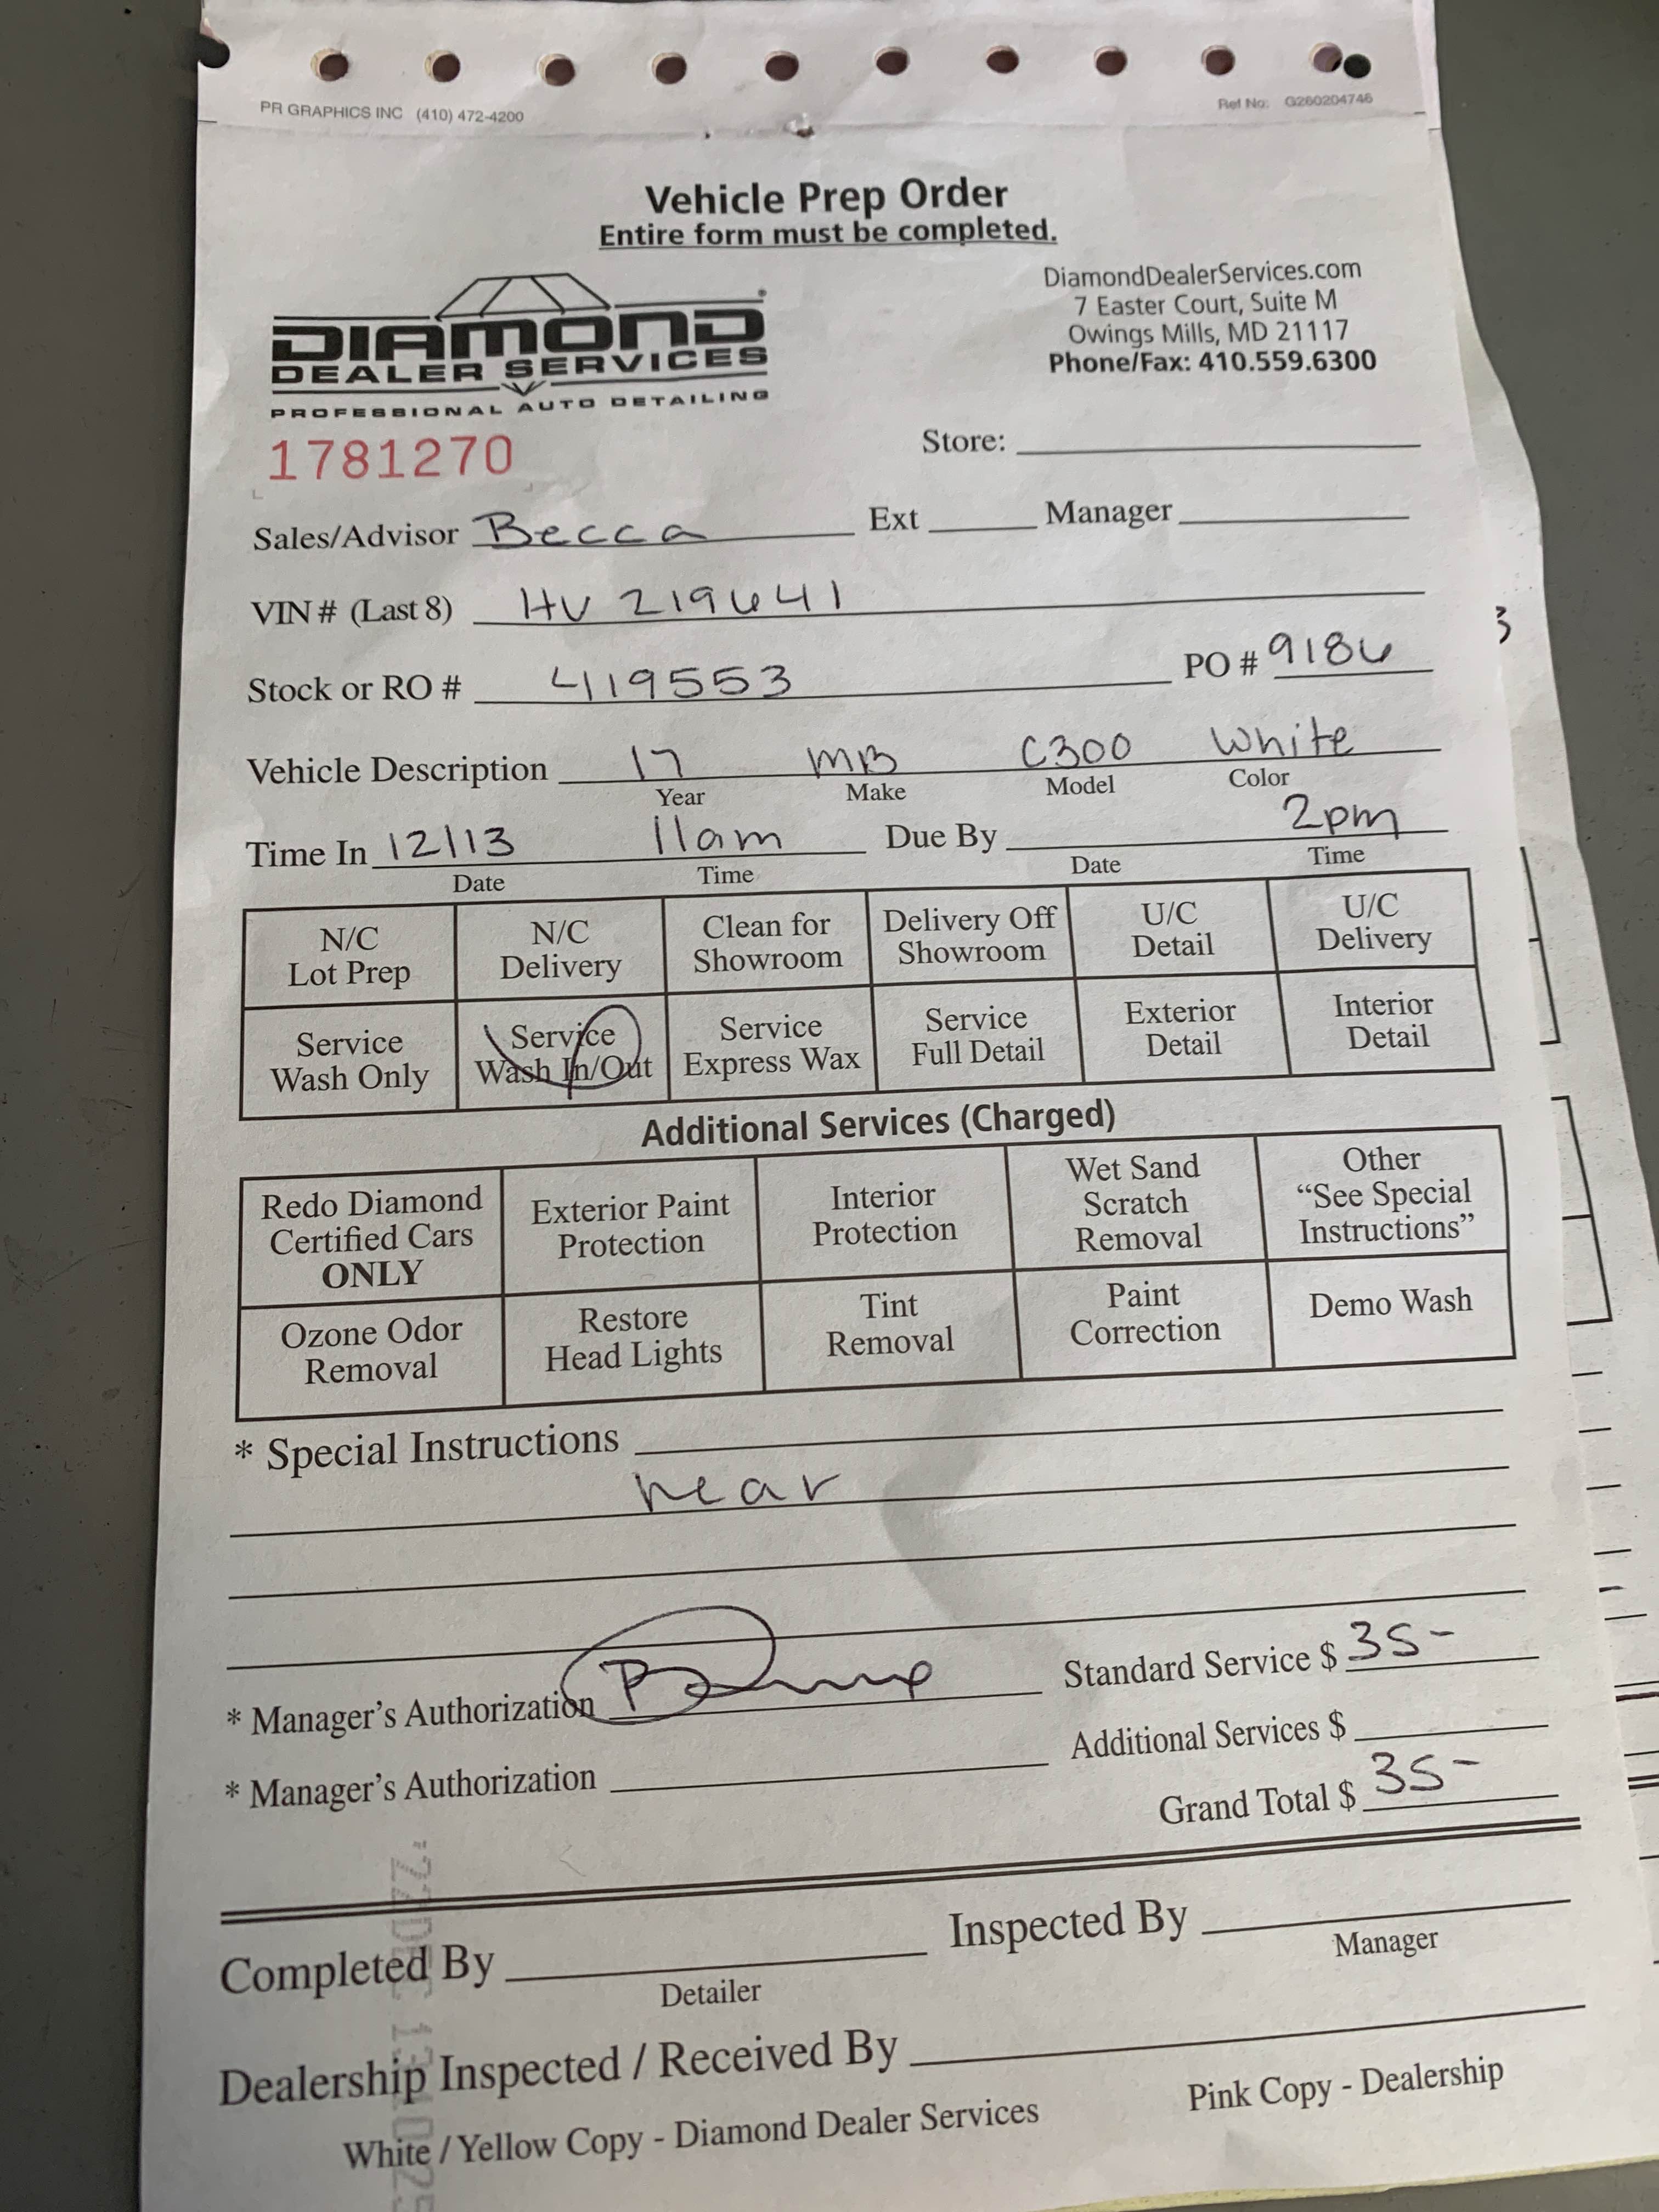 PR GRAPHICS INC (410) 472-4200
Ref No: G260204746
Vehicle Prep Order
Entire form must be completed.
DIAMOND
DEALER SERVICES
PROFESSIONAL AUTO DETAILING
DiamondDealerServices.com
7 Easter Court, Suite M
Owings Mills, MD 21117
Phone/Fax: 410.559.6300
1781270
Store:
Sales/Advisor Becca Ext Manager
VIN # (Last 8) HV 219641
3
Stock or RO # 4119553 PO # 9186
Vehicle Description 17 MB C300 White
Year Make Model Color
Time In 12/13 11am Due By 2pm
Date Time Date Time
N/C Lot Prep
N/C Delivery
Clean for Showroom
Delivery Off Showroom
U/C Detail
U/C Delivery
Service Wash Only
Service Wash In/Out
Service Express Wax
Service Full Detail
Exterior Detail
Interior Detail
Additional Services (Charged)
Redo Diamond Certified Cars ONLY
Exterior Paint Protection
Interior Protection
Wet Sand Scratch Removal
Other "See Special Instructions"
Ozone Odor Removal
Restore Head Lights
Tint Removal
Paint Correction
Demo Wash
* Special Instructions
near
* Manager's Authorization Standard Service $ 35-
* Manager's Authorization Additional Services $
Grand Total $ 35-
Completed By Inspected By
Detailer Manager
Dealership Inspected / Received By
White / Yellow Copy - Diamond Dealer Services Pink Copy - Dealership